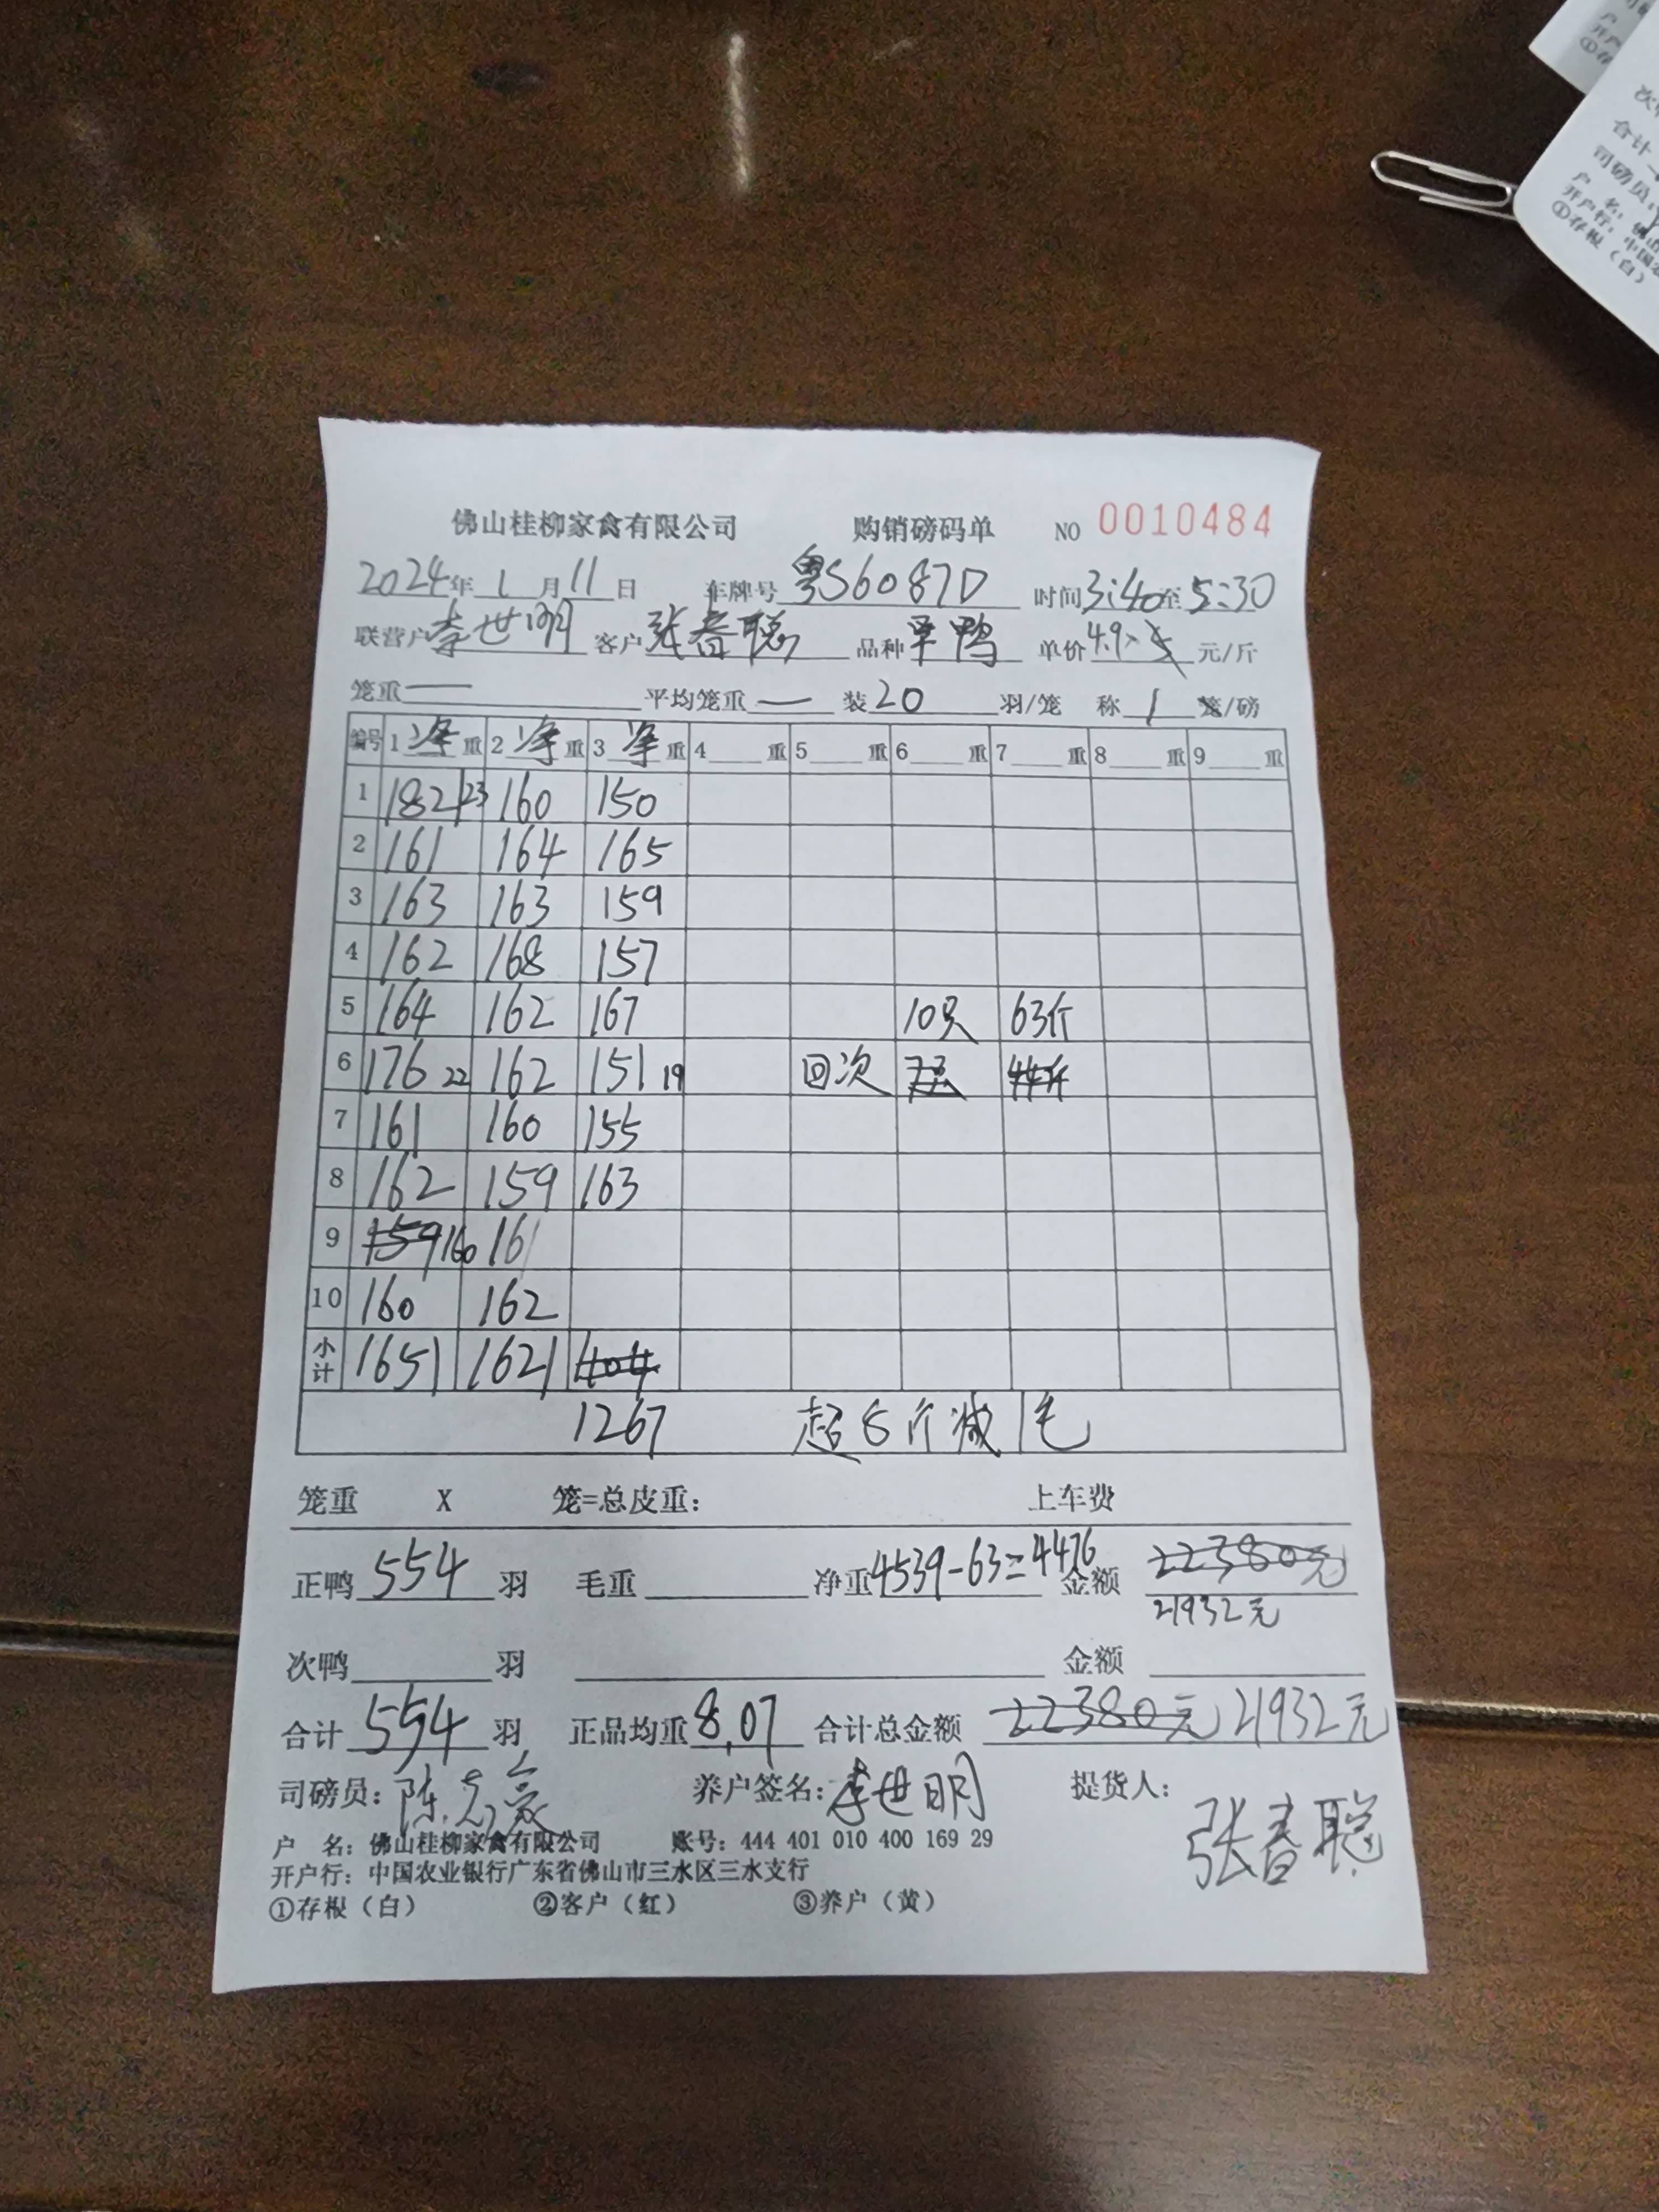 佛山桂柳家禽有限公司 购销磅码单 NO 0010484
2024年 1 月 11 日 车牌号 粤S6087D 时间3:40至5:30
联营户 李世明 客户 张春聪 品种 旱鸭 单价 4.9 元/斤
笼重 — 平均笼重 — 装 20 羽/笼 称 1 笼/磅
编号 1 净 重 2 净 重 3 净 重 4 重 5 重 6 重 7 重 8 重 9 重
1 182 23 160 150
2 161 164 165
3 163 163 159
4 162 168 157
5 164 162 167 10只 63斤
6 176 22 162 151 19 回次
7 161 160 155
8 162 159 163
9 159 160 161
10 160 162
小计 1651 1621 404
1267 超8斤减1毛
笼重 X 笼=总皮重: 上车费
正鸭 554 羽 毛重 净重 4539-63=4476 金额 22380元
21932元
次鸭 羽 金额
合计 554 羽 正品均重 8.07 合计总金额 22380元 21932元
司磅员: 陈 养户签名: 李世明 提货人: 张春聪
户 名: 佛山桂柳家禽有限公司 账号: 444 401 010 400 169 29
开户行: 中国农业银行广东省佛山市三水区三水支行
①存根（白） ②客户（红） ③养户（黄）
次
合计
司磅员:
户 名: 佛山
开户行: 中国农
①存根（白）